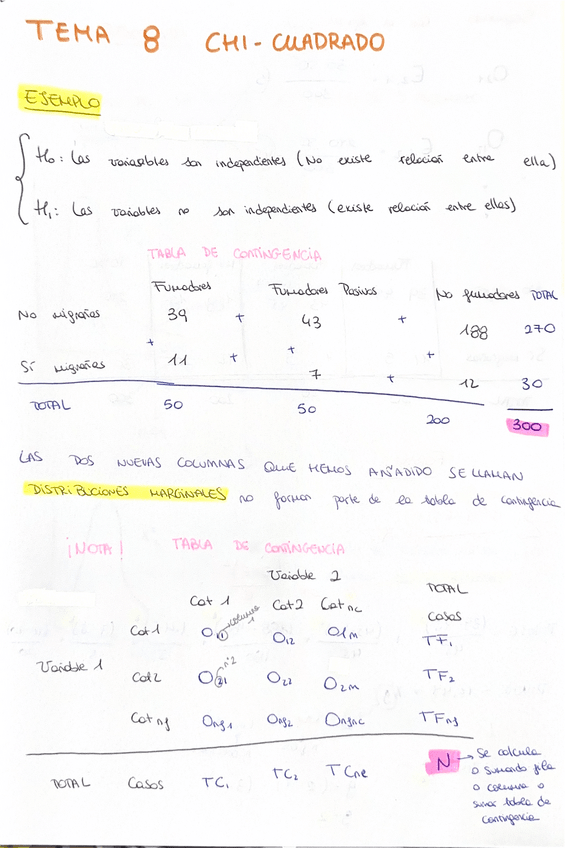 TEMA 8 CHI-CUADRADO
EJEMPLO
H₀: Las variables son independientes (No existe relación entre ella)
H₁: Las variables no son independientes (existe relación entre ellas)
TABLA DE CONTINGENCIA
Fumadores Fumadores Pasivos No fumadores TOTAL
No migrañas 39 + 43 + 188 270
+ + +
Sí migrañas 11 + 7 + 12 30
TOTAL 50 50 200 300
LAS DOS NUEVAS COLUMNAS QUE HEMOS AÑADIDO SE LLAMAN
DISTRIBUCIONES MARGINALES no forman parte de la tabla de contingencia
¡NOTA! TABLA DE CONTINGENCIA
Variable 2
TOTAL
Cat 1 Cat 2 Cat nc casos
columna 1
Cat 1 O₁₁ O₁₂ O1m TF₁
nº2
Variable 1 Cat 2 O₂₁ O₂₂ O₂m TF₂
Cat nf Onf1 Onf2 Onfnc TFnf
TOTAL Casos TC₁ TC₂ TCnc N → Se calcula
o sumando fila
o columna o
sumar tabla de
contingencia